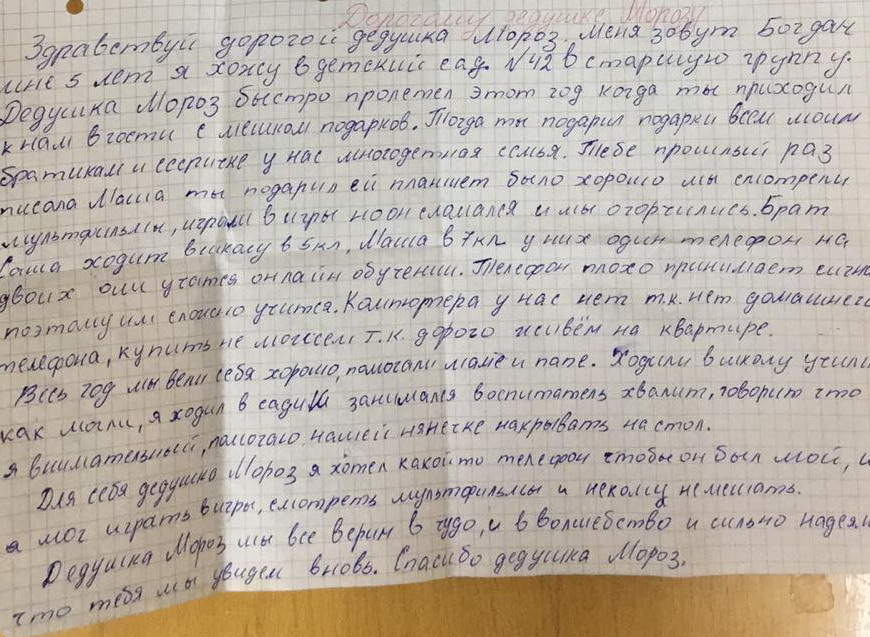 Дорогому дедушке Морозу
Здравствуй дорогой дедушка Мороз. Меня зовут Богдан
мне 5 лет я хожу в детский сад. N42 в старшую группу.
Дедушка Мороз быстро пролетел этот год когда ты приходил
к нам в гости с мешком подарков. Тогда ты подарил подарки всем моим
братикам и сестричке у нас многодетная семья. Тебе прошлый раз
писала Маша ты подарил ей планшет было хорошо мы смотрели
мультфильмы, играли в игры но он сламался и мы огорчились. Брат
Саша ходит в школу в 5 кл, Маша в 7 кл у них один телефон на
двоих они учатся онлайн обучении. Телефон плохо принимает сигна
поэтому им сложно учится. Компютера у нас нет т.к. нет домашнего
телефона, купить не можем т.к. дорого живём на квартире.
Весь год мы вели себя хорошо, помогали маме и папе. Ходили в школу учили
как могли, я ходил в садик занимался воспитатель хвалит, говорит что
я внимательный, помогаю нашей нянечке накрывать на стол.
Для себя дедушка Мороз я хотел какой то телефон чтобы он был мой, и
я мог играть в игры, смотреть мультфильмы и некому немешать.
Дедушка Мороз мы все верим в чудо, и в волшебство и сильно надеем
что тебя мы увидем вновь. Спасибо дедушка Мороз.